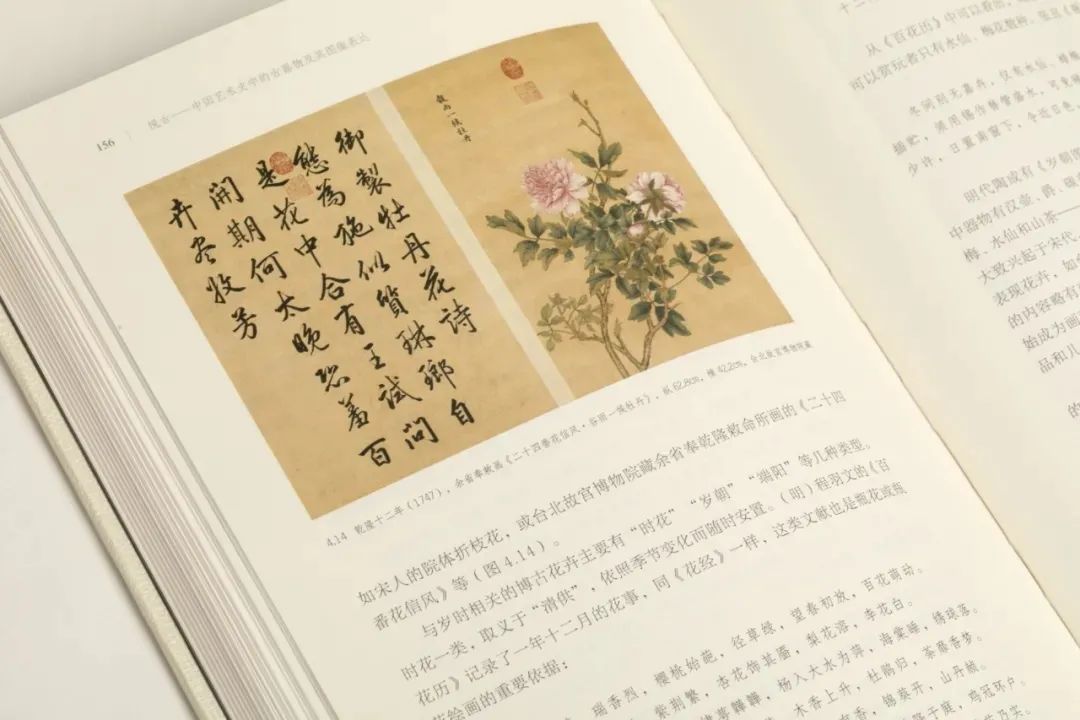 156 | 悦古——中国艺术史中的古器物及其图像表达
御製牡丹花詩
態為施似質琳瑯自
是花中合有王試問
開期何太晚恐羞百
卉尽收芳
穀雨一候牡丹
4.14 乾隆十二年（1747），余省奉敕画《二十四番花信风·谷雨一候牡丹》，纵62.8cm，横42.2cm，台北故宫博物院藏
如宋人的院体折枝花，或台北故宫博物院藏余省奉乾隆敕命所画的《二十四
番花信风》等（图4.14）。
与岁时相关的博古花卉主要有“时花”“岁朝”“端阳”等几种类型。
时花一类，取义于“清供”，依照季节变化而随时安置。（明）程羽文的《百
花历》记录了一年十二月的花事，同《花经》一样，这类文献也是瓶花或瓶
花绘画的重要依据：
瑞香烈，樱桃始葩，径草绿，望春初放，百花萌动。
紫荆繁，杏花饰其靥，梨花溶，李花白。
杨入大水为萍，海棠睡，绣球落。
木香上升，杜鹃归，荼蘼香梦。
锦葵开，山丹赪。
鸡冠环户。
十二
从《百花历》中可以看出，
可以赏玩者只有水仙、梅花数种，
冬间别无嘉卉，仅有水仙、蜡梅
插贮，须用锡作替管盛水，可免破
少许，日置南窗下，令近日色，
明代陶成有《岁朝图
中器物有汉壶、爵、
梅、水仙和山茶——
大致兴起于宋代。
表现花卉，如
的内容略有
始成为画
品和儿
的